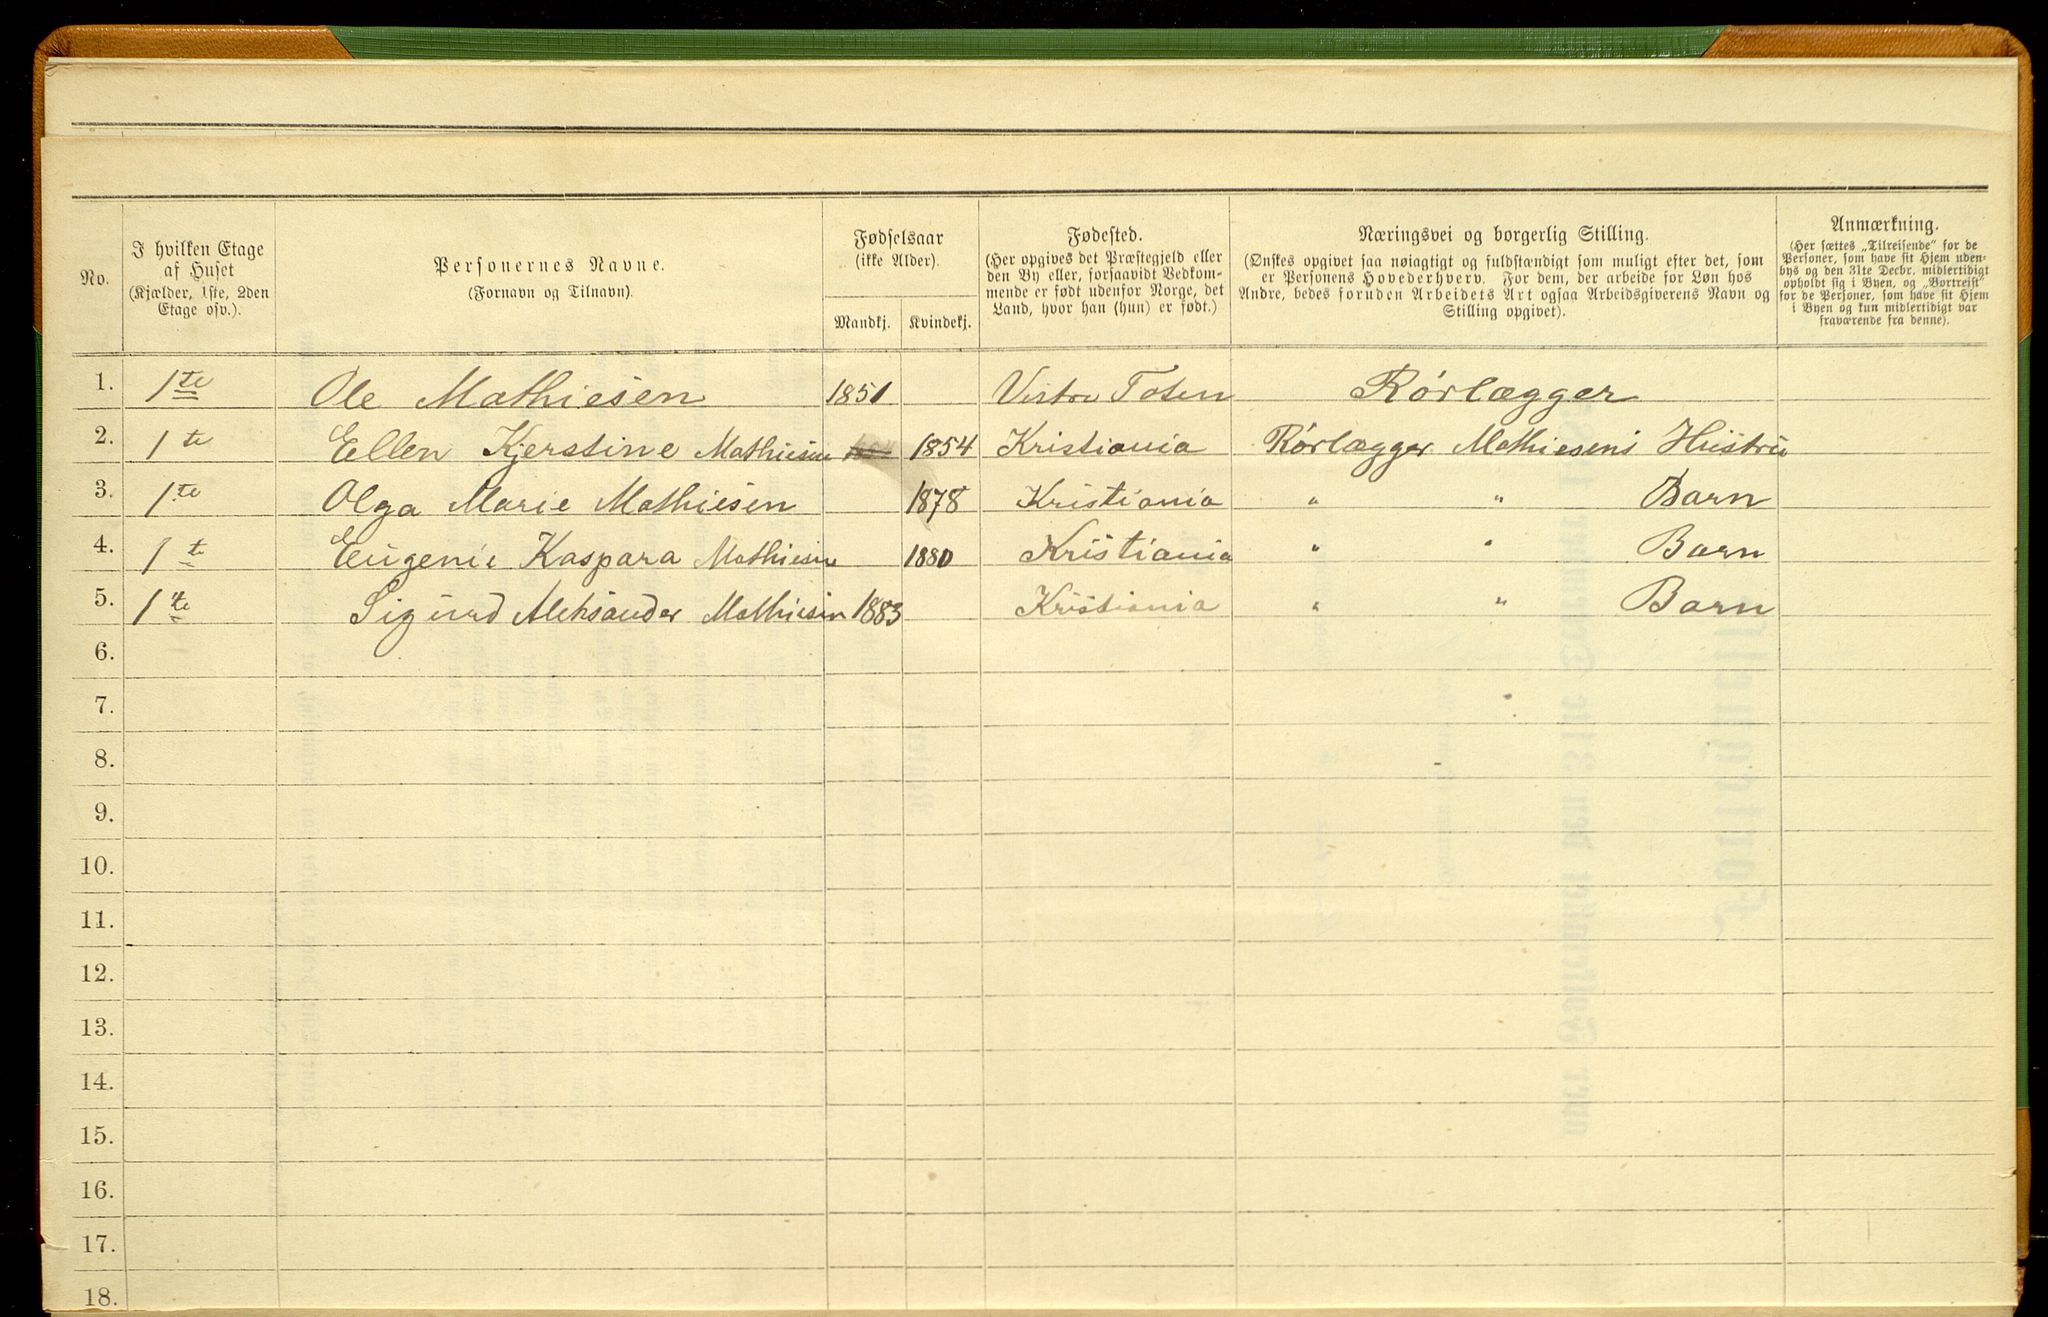 No.
I hvilken Etage
af Huset
(Kjælder, 1ste, 2den
Etage osv.).
Personernes Navne.
(Fornavn og Tilnavn).
Fødselsaar
(ikke Alder).
Mandkj. Kvindekj.
Fødested.
(Her opgives det Præstegjeld eller
den By eller, forsaavidt Vedkom-
mende er født udenfor Norge, det
Land, hvor han (hun) er født.)
Næringsvei og borgerlig Stilling.
(Ønskes opgivet saa nøiagtigt og fuldstændigt som muligt efter det, som
er Personens Hovederhverv. For dem, der arbeide for Løn hos
Andre, bedes foruden Arbeidets Art ogsaa Arbeidsgiverens Navn og
Stilling opgivet).
Anmærkning.
(Her sættes „Tilreisende“ for de
Personer, som have sit Hjem uden-
bys og den 31te Decbr. midlertidigt
opholdt sig i Byen, og „Bortreist“
for de Personer, som have sit Hjem
i Byen og kun midlertidigt var
fraværende fra denne).
1. 1te Ole Mathiesen 1851 Vestre Toten Rörlægger
2. 1te Ellen Kjerstine Mathiesen 1854 Kristiania Rörlægger Mathiesens Hustru
3. 1te Olga Marie Mathiesen 1878 Kristiania " " Barn
4. 1te Eugenie Kaspara Mathiesen 1880 Kristiania " " Barn
5. 1te Sigurd Aleksander Mathiesen 1883 Kristiania " " Barn
6.
7.
8.
9.
10.
11.
12.
13.
14.
15.
16.
17.
18.